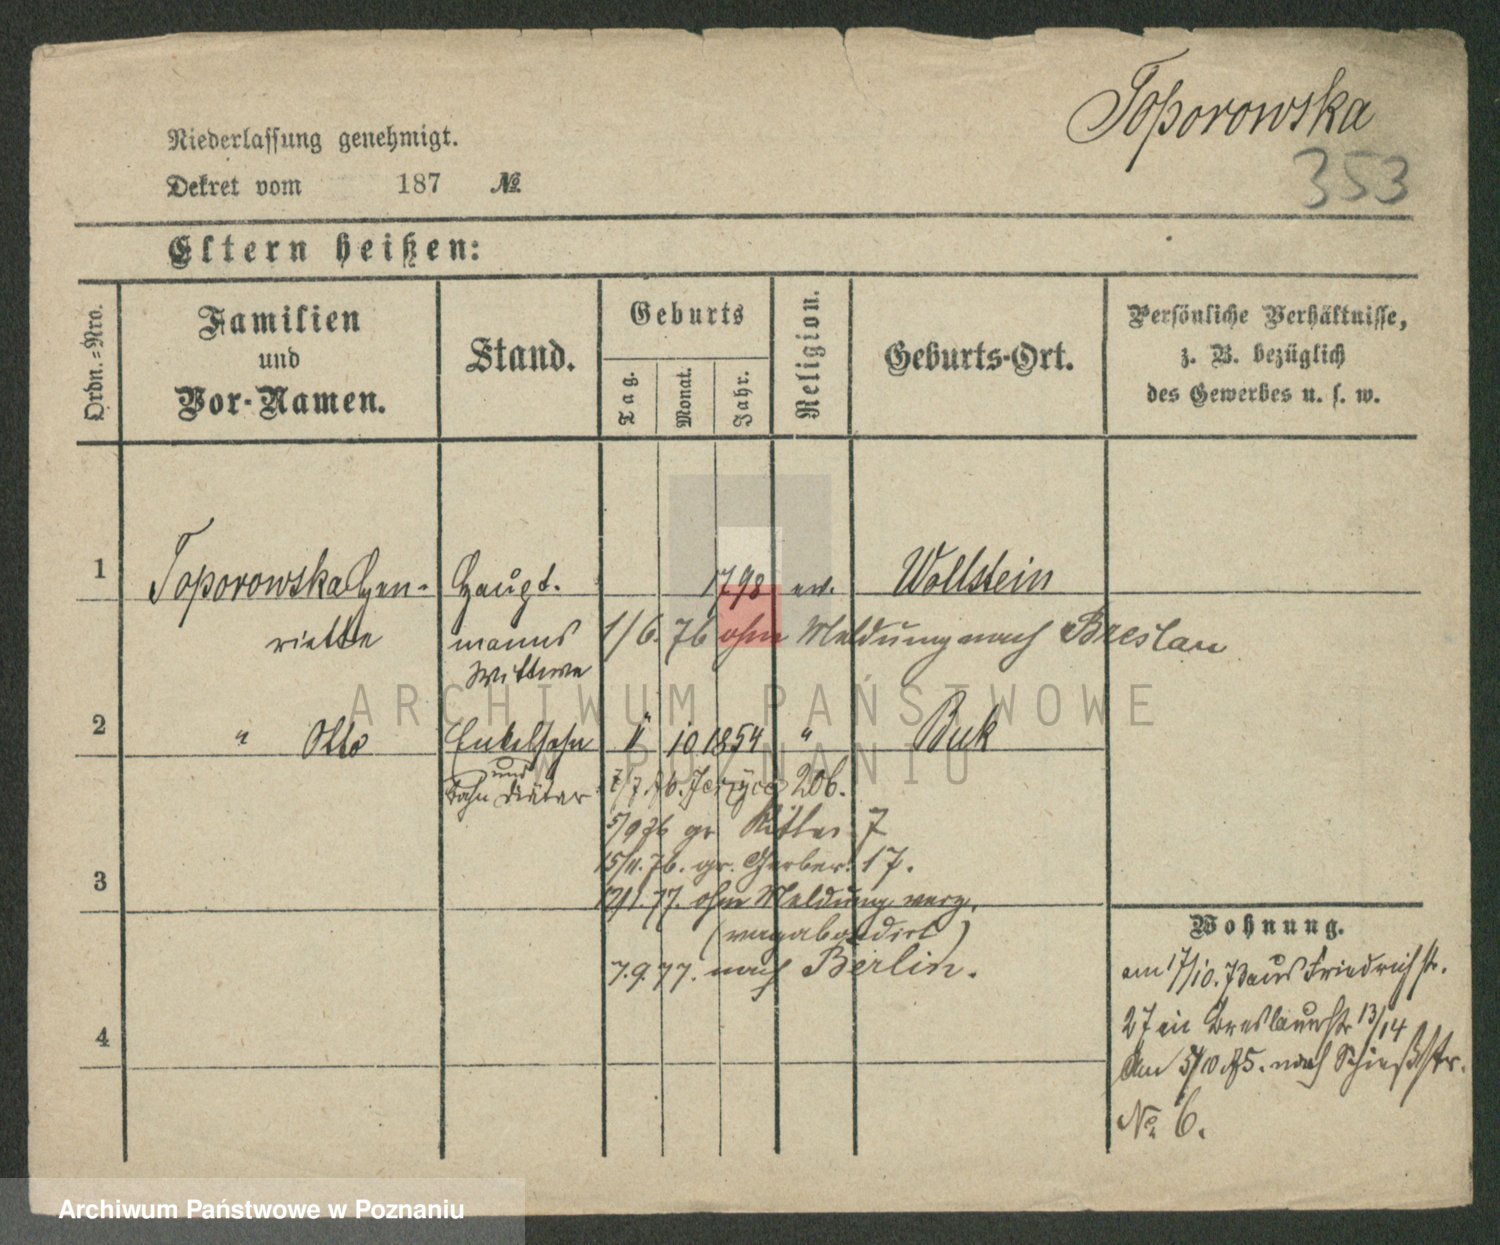 Toporowska
353
Niederlassung genehmigt.
Dekret vom 187 №
Eltern heißen:
Ordn.=Nro.
Familien
und
Vor-Namen.
Stand.
Geburts
Tag.
Monat.
Jahr.
Religion.
Geburts-Ort.
Persönliche Verhältnisse,
z. B. bezüglich
des Gewerbes u. s. w.
1 Toporowska Hen- Haupt. 1798 ev. Wollstein
riette manns 1/6. 76 ohne Meldung nach Breslau
Wittwe
2 " Otto Enkelsohn 11 10 1854 " Buk
und 7/7. 76. Jerzyce 206.
Bahn Diätar
5/9 76 gr Ritter 7
15/11. 76. gr. Gerber. 17.
3 12/1. 77. ohne Meldung verz.
(vagabondirt)
7.9.77. nach Berlin.
4
Wohnung.
am 17/10. 73 aus Friedrichstr.
27 in Breslauerstr 13/14
Am 5/10 75. nach Schießstr.
No. 6.
ARCHIWUM PAŃSTWOWE
W POZNANIU
Archiwum Państwowe w Poznaniu